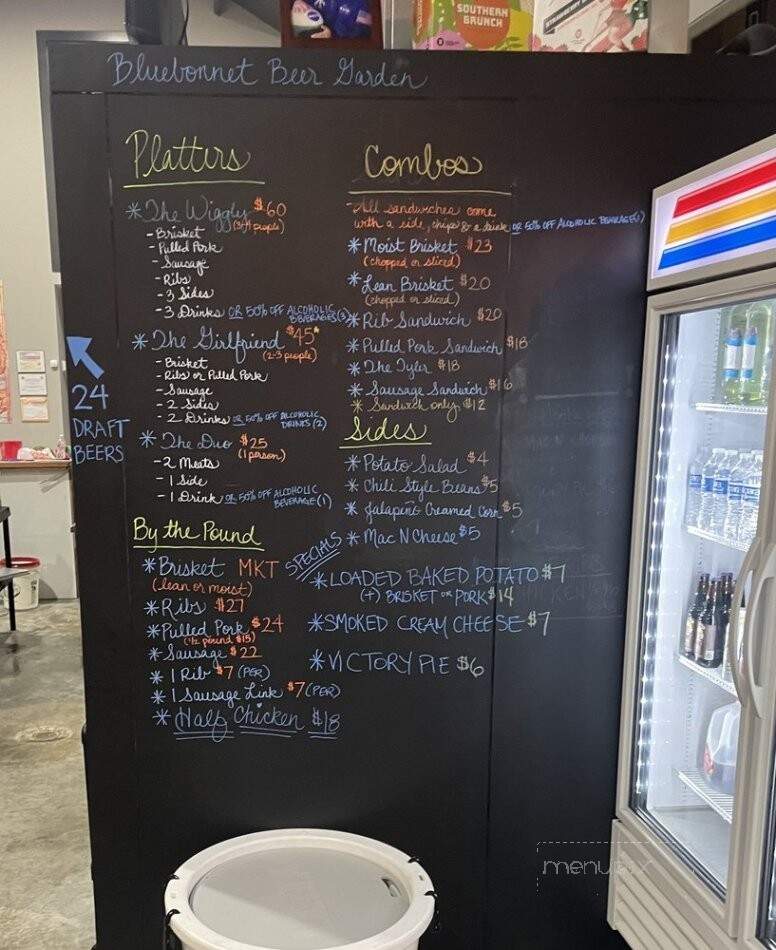 SOUTHERN BRUNCH
Bluebonnet Beer Garden
Platters
* The Wiggly $60
(3-4 people)
- Brisket
- Pulled Pork
- Sausage
- Ribs
- 3 Sides
- 3 Drinks OR 50% OFF ALCOHOLIC BEVERAGES (3)
* The Girlfriend $45
(2-3 people)
- Brisket
- Ribs or Pulled Pork
- Sausage
- 2 Sides
- 2 Drinks OR 50% OFF ALCOHOLIC DRINKS (2)
* The Duo $25
(1 person)
- 2 Meats
- 1 Side
- 1 Drink OR 50% OFF ALCOHOLIC BEVERAGE (1)
24
DRAFT
BEERS
By the Pound
* Brisket MKT
(lean or moist)
* Ribs $27
* Pulled Pork $24
(1/2 pound $15)
* Sausage $22
* 1 Rib $7 (PER)
* 1 Sausage Link $7 (PER)
* Half Chicken $18
Combos
- All sandwiches come
with a side, chips & a drink OR 50% OFF ALCOHOLIC BEVERAGE(1)
* Moist Brisket $23
(chopped or sliced)
* Lean Brisket $20
(chopped or sliced)
* Rib Sandwich $20
* Pulled Pork Sandwich $18
* The Tyler $18
* Sausage Sandwich $16
* Sandwich only $12
Sides
* Potato Salad $4
* Chili Style Beans $5
* Jalapeño Creamed Corn $5
* Mac N Cheese $5
SPECIALS
* LOADED BAKED POTATO $7
(+) BRISKET OR PORK $14
* SMOKED CREAM CHEESE $7
* VICTORY PIE $6